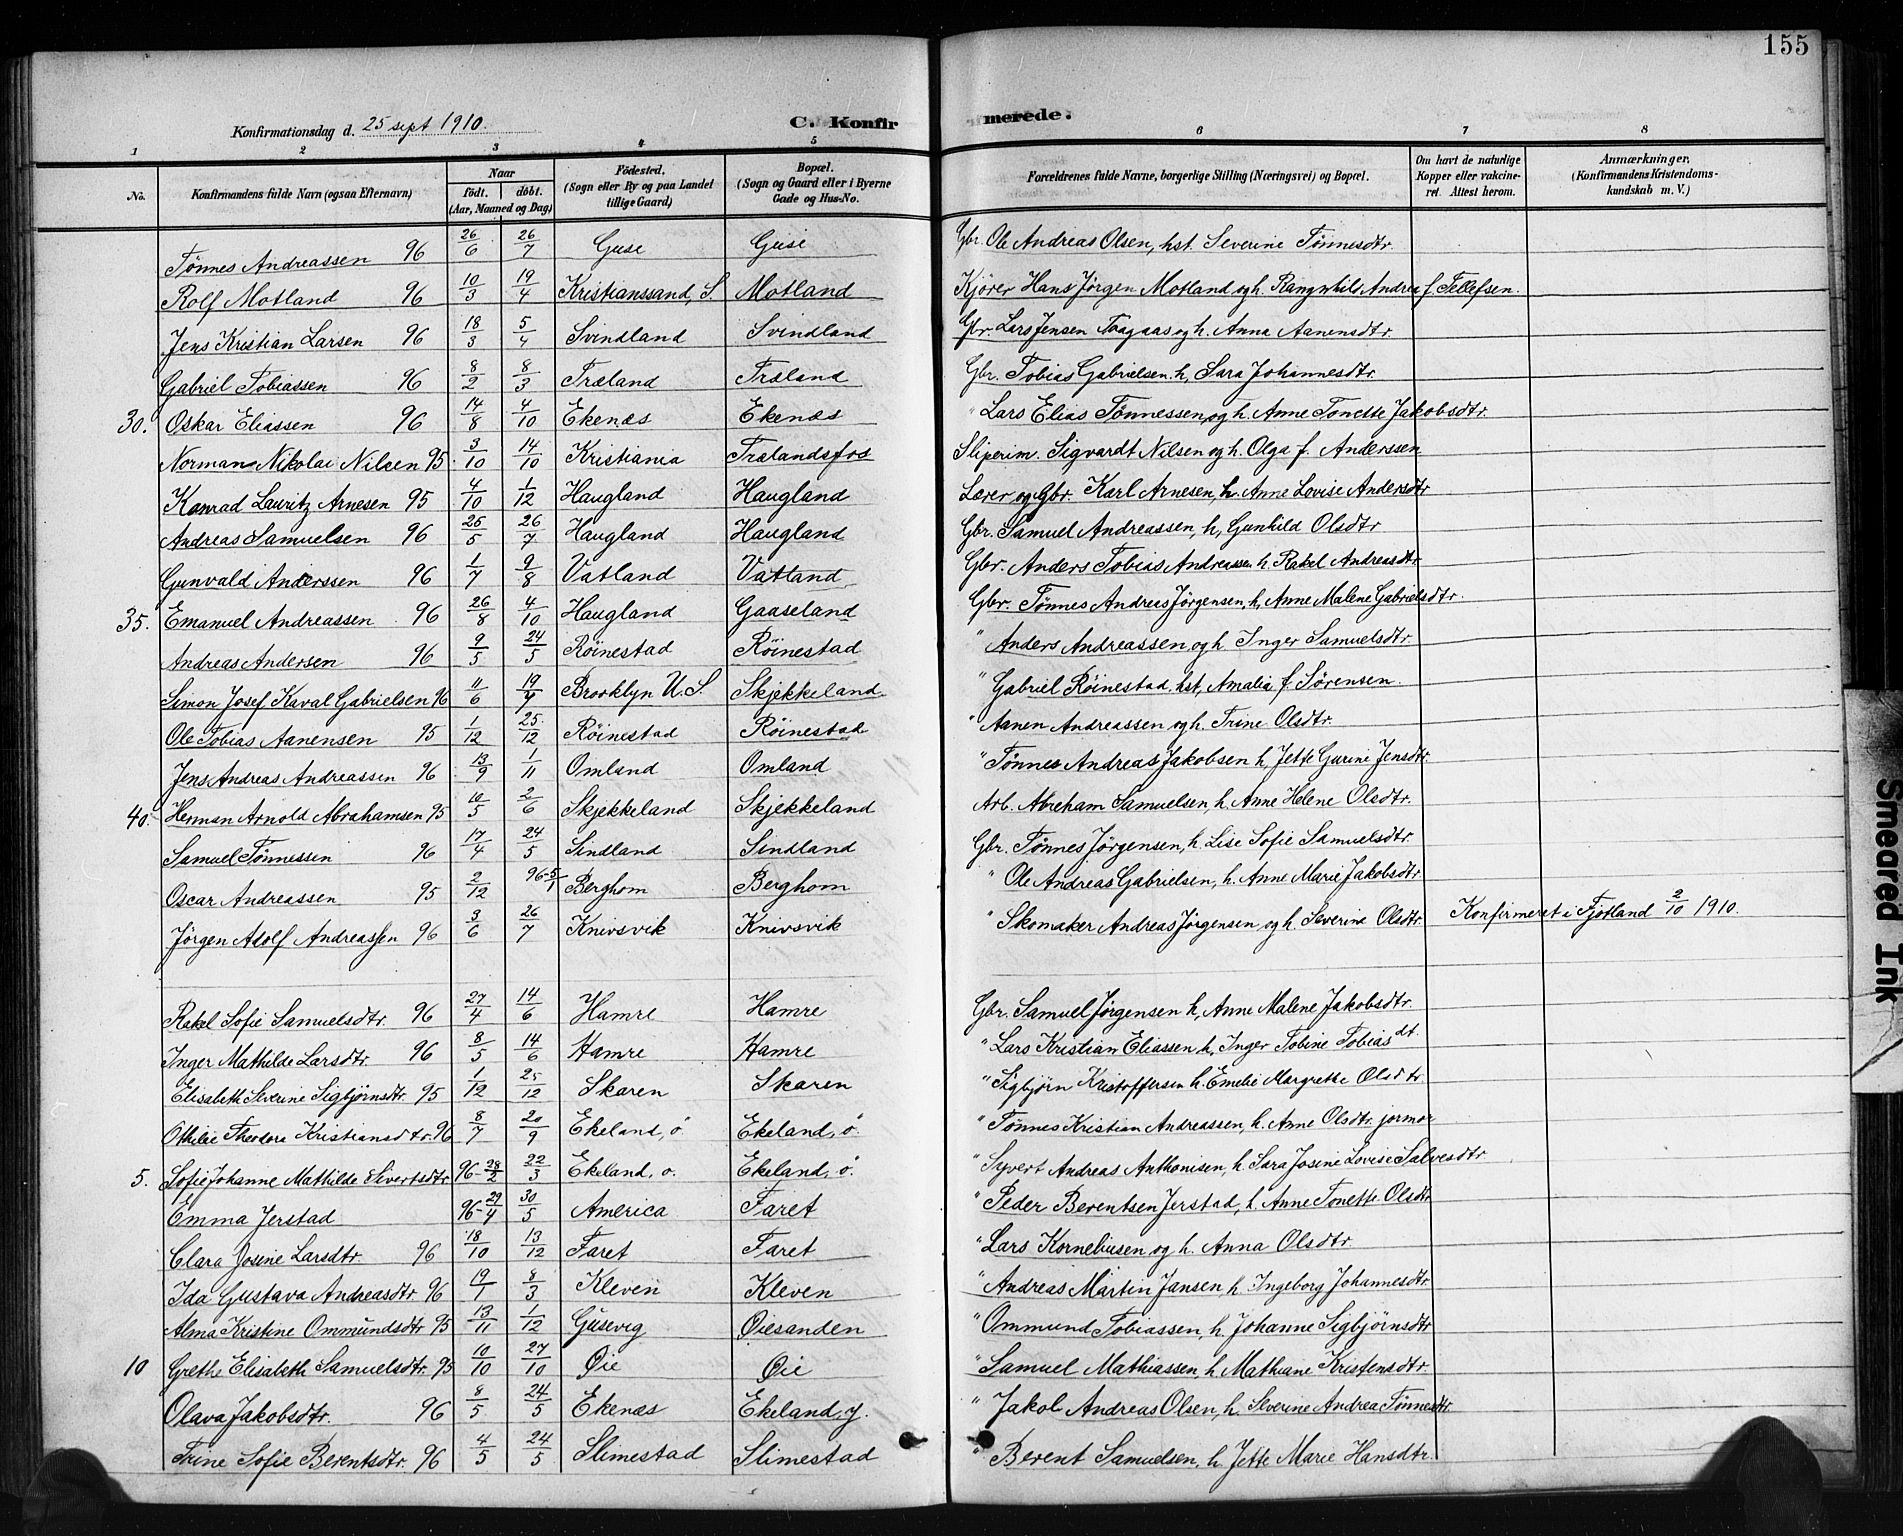 155
Konfirmationsdag d. 25 sept 1910.
C. Konfirmerede.
1 2 3 4 5 6 7 8
No. Konfirmandens fulde Navn (ogsaa Efternavn) Naar født. døbt. (Aar, Maaned og Dag) Fødested. (Sogn eller By og paa Landet tillige Gaard) Bopæl. (Sogn og Gaard eller i Byerne Gade og Hus-No. Forældrenes fulde Navne, borgerlige Stilling (Næringsvei) og Bopæl. Om havt de naturlige Kopper eller vakcineret. Attest herom. Anmærkninger. (Konfirmandens Kristendomskundskab m. V.)
Tønnes Andreassen 96 26/6 26/7 Guse Guse Gbr. Ole Andreas Olsen, hst. Severine Tønnesdtr.
Rolf Motland 96 10/3 19/4 Kristianssand, S. Motland Kjører Hans Jørgen Motland og h. Rangnhild Andrea f. Tellefsen.
Jens Kristian Larsen 96 18/3 5/4 Svindland Svindland Gbr. Lars Jensen Aagaas og h. Anna Aanensdtr.
Gabriel Tobiassen 96 8/2 8/3 Træland Træland Gbr. Tobias Gabrielsen. h, Sara Johannesdtr.
30. Oskar Eliassen 96 14/8 4/10 Ekenæs Ekenæs " Lars Elias Tønnessen, og h. Anne Tonette Jakobsdtr.
Norman Nikolai Nilsen 95. 3/10 14/10 Kristiania Trælandsfos Sliperim. Sigvardt Nilsen og h. Olga f. Anderssen
Konrad Lauritz Arnesen 95 4/10 1/12 Haugland Haugland Lærer og Gbr. Karl Arnesen, h. Anne Lovise Andersdtr
Andreas Samuelsen 96 25/5 26/7 Haugland Haugland Gbr. Samuel Andreassen, h, Gunhild Olsdtr
Gunvald Anderssen 96 1/7 9/8 Vatland Vatland Gbr. Anders Tobias Andreassen h. Rakel Andreasdtr
35. Emanuel Andreassen 96 26/8 4/10 Haugland Gaaseland Gbr. Tønnes Andreas Jørgensen, h, Anne Malene Gabrielsdtr.
Andreas Andersen 96 9/5 24/5 Røinestad Røinestad " Anders Andreassen og h Inger Samuelsdtr.
Simon Josef Kaval Gabrielsen 96 11/6 19/7 Brooklyn U.S. Skjekkeland " Gabriel Røinestad. hst, Amalia f Sørensen.
Ole Tobias Aanensen 95 1/12 25/12 Røinestad Røinestad " Aanen Andreassen og h. Trine Olsdtr.
Jens Andreas Andreassen 96 13/9 1/11 Omland Omland " Tønnes Andreas Jakobsen h, Jette Gurine Jensdtr.
40. Herman Arnold Abrahamsen 95 10/5 2/6 Skjekkeland Skjekkeland Arb. Abreham Samuelsen, h. Anne Helene Olsdtr.
Samuel Tønnessen 96 17/4 24/5 Sindland Sindland Gbr. Tønnes Jørgensen, h. Lise Sofie Samuelsdtr.
Oscar Andreassen 95 2/12 96-5/1 Berghom Berghom " Ole Andreas Gabrielsen, h. Anne Marie Jakobsdtr
Jørgen Adolf Andreassen 96 3/6 26/7 Knivsvik Knivsvik " Skomaker Andreas Jørgensen og h. Severine Olsdtr. Konfirmeret i Fjotland 2/10 1910.
Rakel Sofie Samuelsdtr. 96 27/4 14/6 Hamre Hamre Gbr. Samuel Jørgensen h, Anne Malene Jakobsdtr.
Inger Mathilde Larsdtr. 96 8/5 14/6 Hamre Hamre " Lars Kristian Eliassen h, Inger Tobine Tobiasdt.
Elisabeth Severine Sigbjørnsdtr. 95 1/12 25/12 Skaren Skaren " Sigbjørn Kristoffersen h. Emelie Margrethe Olsdtr.
Othilie Theodora Kristiansdtr. 96 8/7 20/9 Ekeland, ø Ekeland, ø. " Tønnes Kristian Andreassen, h. Anne Olsdtr. jormor
5. Sofie Johanne Mathilde Sivertsdtr 96-28/2 22/3 Ekeland, ø. Ekeland, ø. " Syvert Andreas Anthonisen, h. Sara Josine Lovise Salvesdtr
Emma Jerstad 96-29/4 30/5 America Faret " Peder Berentsen Jerstad, h. Anne Tonette Olsdtr
Clara Josine Larsdtr. 96 18/10 13/12 Faret Faret " Lars Korneliusen og h. Anna Olsdtr
Ida Gustava Andreasdtr 96 19/1 8/3 Kleven Kleven " Andreas Martin Jansen h. Ingeborg Johannesdtr.
Alma Kristine Ommundsdtr 95 13/11 1/12 Gusevig Øiesanden " Ommund Tobiassen, h. Johanne Sigbjørnsdtr
10 Grethe Elisabeth Samuelsdtr. 95 10/10 27/10 Øie Øie " Samuel Mathiassen, h. Mathiane Kristensdtr.
Olava Jakobsdtr. 96 8/5 24/5 Ekenæs Ekeland, y. " Jakob Andreas Olsen, h. Severine Andrea Tønnesdtr
Trine Sofie Berentsdtr. 96 4/5 24/5 Slimestad Slimestad " Berent Samuelsen, h. Jette Marie Hansdtr.
Smeared Ink